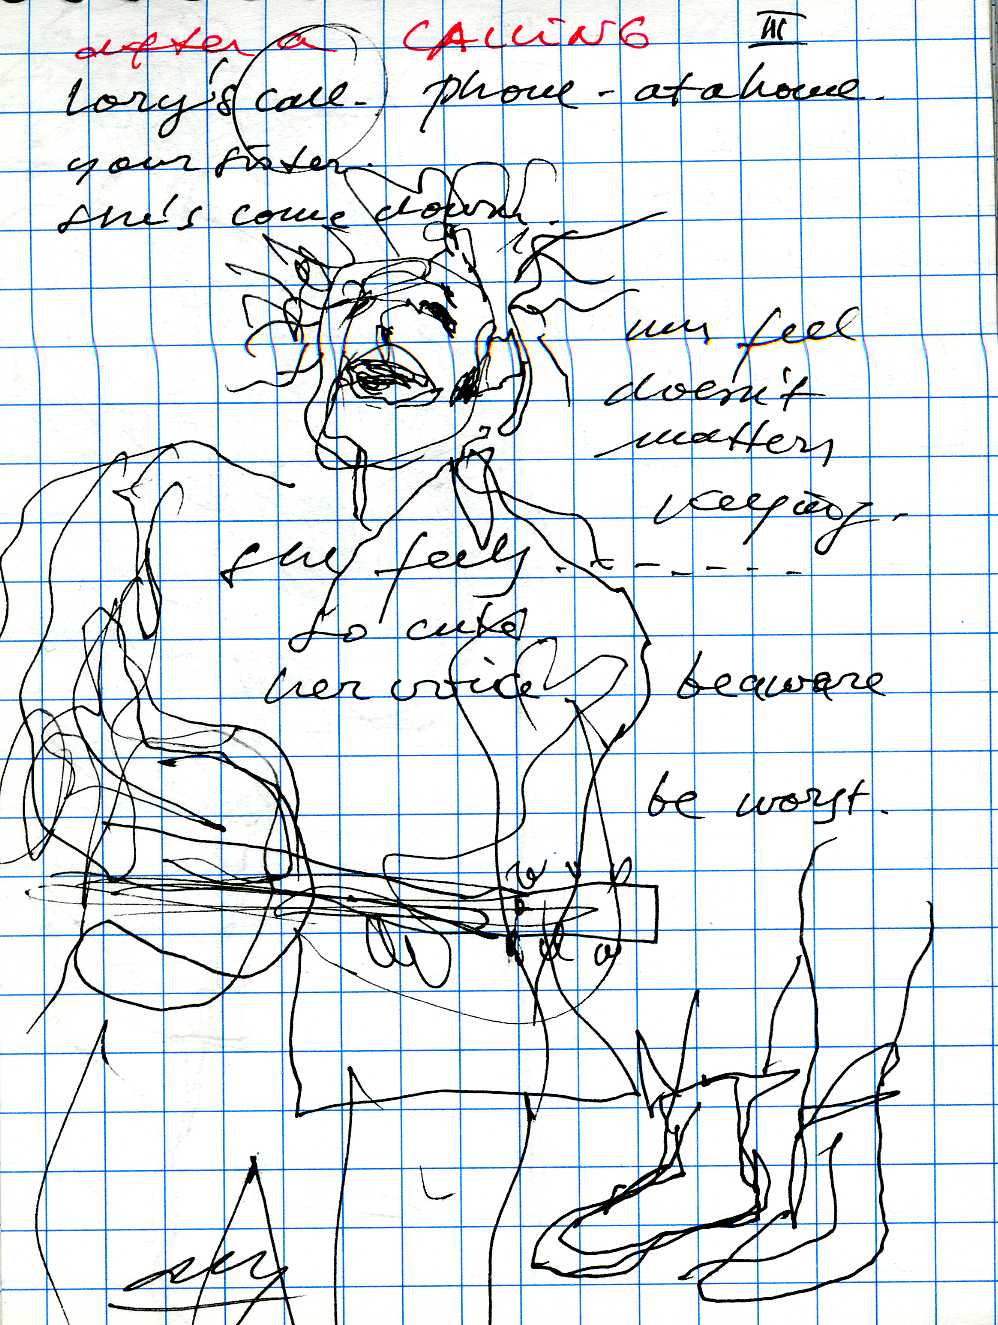 after a CALLING III
Lory's call - phone - at a home.
your sister.
she's come down.
feel
doesn't
matters
she feels . - - - - - -
so cute
her voice
beaware
be worst.